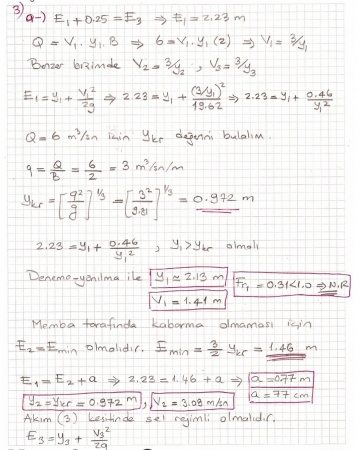 3) a-) E₁ + 0.25 = E₃ ⇒ E₁ = 2.23 m
Q = V₁ . y₁ . B ⇒ 6 = V₁ . y₁ (2) ⇒ V₁ = 3/y₁
Benzer bizimde V₂ = 3/y₂ , V₃ = 3/y₃
E₁ = y₁ + V₁²/2g ⇒ 2.23 = y₁ + (3/y₁)²/19.62 ⇒ 2.23 = y₁ + 0.46/y₁²
Q = 6 m³/sn için ykr değerini bulalım.
q = Q/B = 6/2 = 3 m³/sn/m
ykr = [q²/g]^1/3 = [3²/9.81]^1/3 = 0.972 m
2.23 = y₁ + 0.46/y₁² , y₁ > ykr olmalı
Deneme-yanılma ile y₁ ≃ 2.13 m Fr₁ = 0.31 < 1.0 ⇒ N.R
V₁ = 1.41 m
Memba tarafında kabarma olmaması için
E₂ = Emin olmalıdır. Emin = 3/2 ykr = 1.46 m
E₁ = E₂ + a ⇒ 2.23 = 1.46 + a ⇒ a = 0.77 m
y₂ = ykr = 0.972 m , V₂ = 3.09 m/sn a = 77 cm
Akım (3) kesitinde sel rejimli olmalıdır.
E₃ = y₃ + V₃²/2g